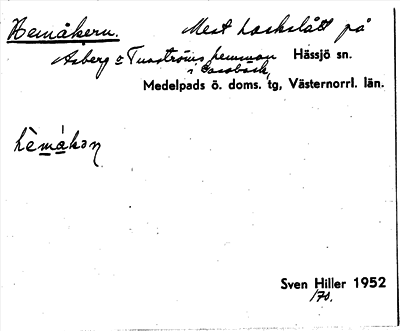 Hemåkern. Mest backslått på
Åsberg o Tunströms hemman Hässjö sn.
i
Medelpads ö. doms. tg, Västernorrl. län.
hèmákəṇ
Sven Hiller 1952
170.